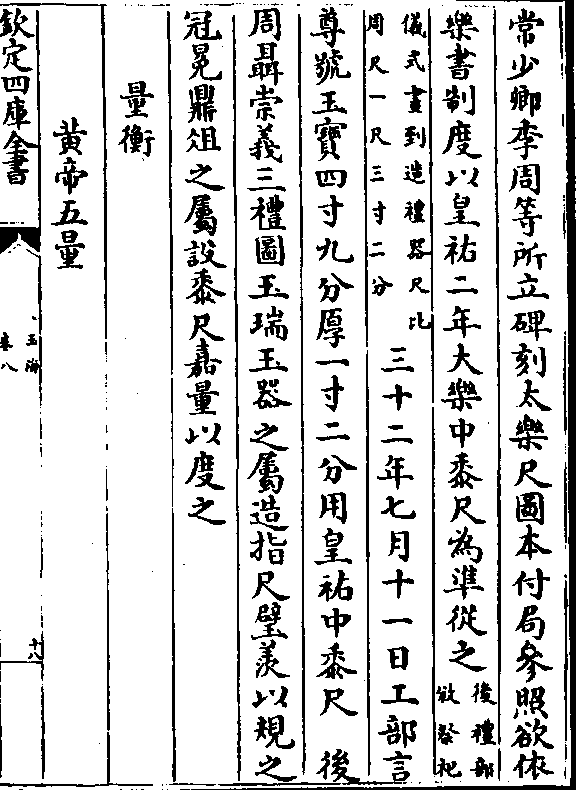 常少卿李周等所立碑刻太樂尺圖本付局參照欲依
樂書制度以皇祐二年大樂中黍尺為準從之後禮部
效祭祀
儀式畫到造禮器尺比
周尺一尺三寸二分
三十二年七月十一日工部言
尊號玉寶四寸九分厚一寸二分用皇祐中黍尺 後
周聶崇義三禮圖玉瑞玉器之屬造指尺璧羡以規之
冠冕鼎俎之屬設黍尺嘉量以度之
量衡
黃帝五量
欽定四庫全書
玉海
卷八
十八